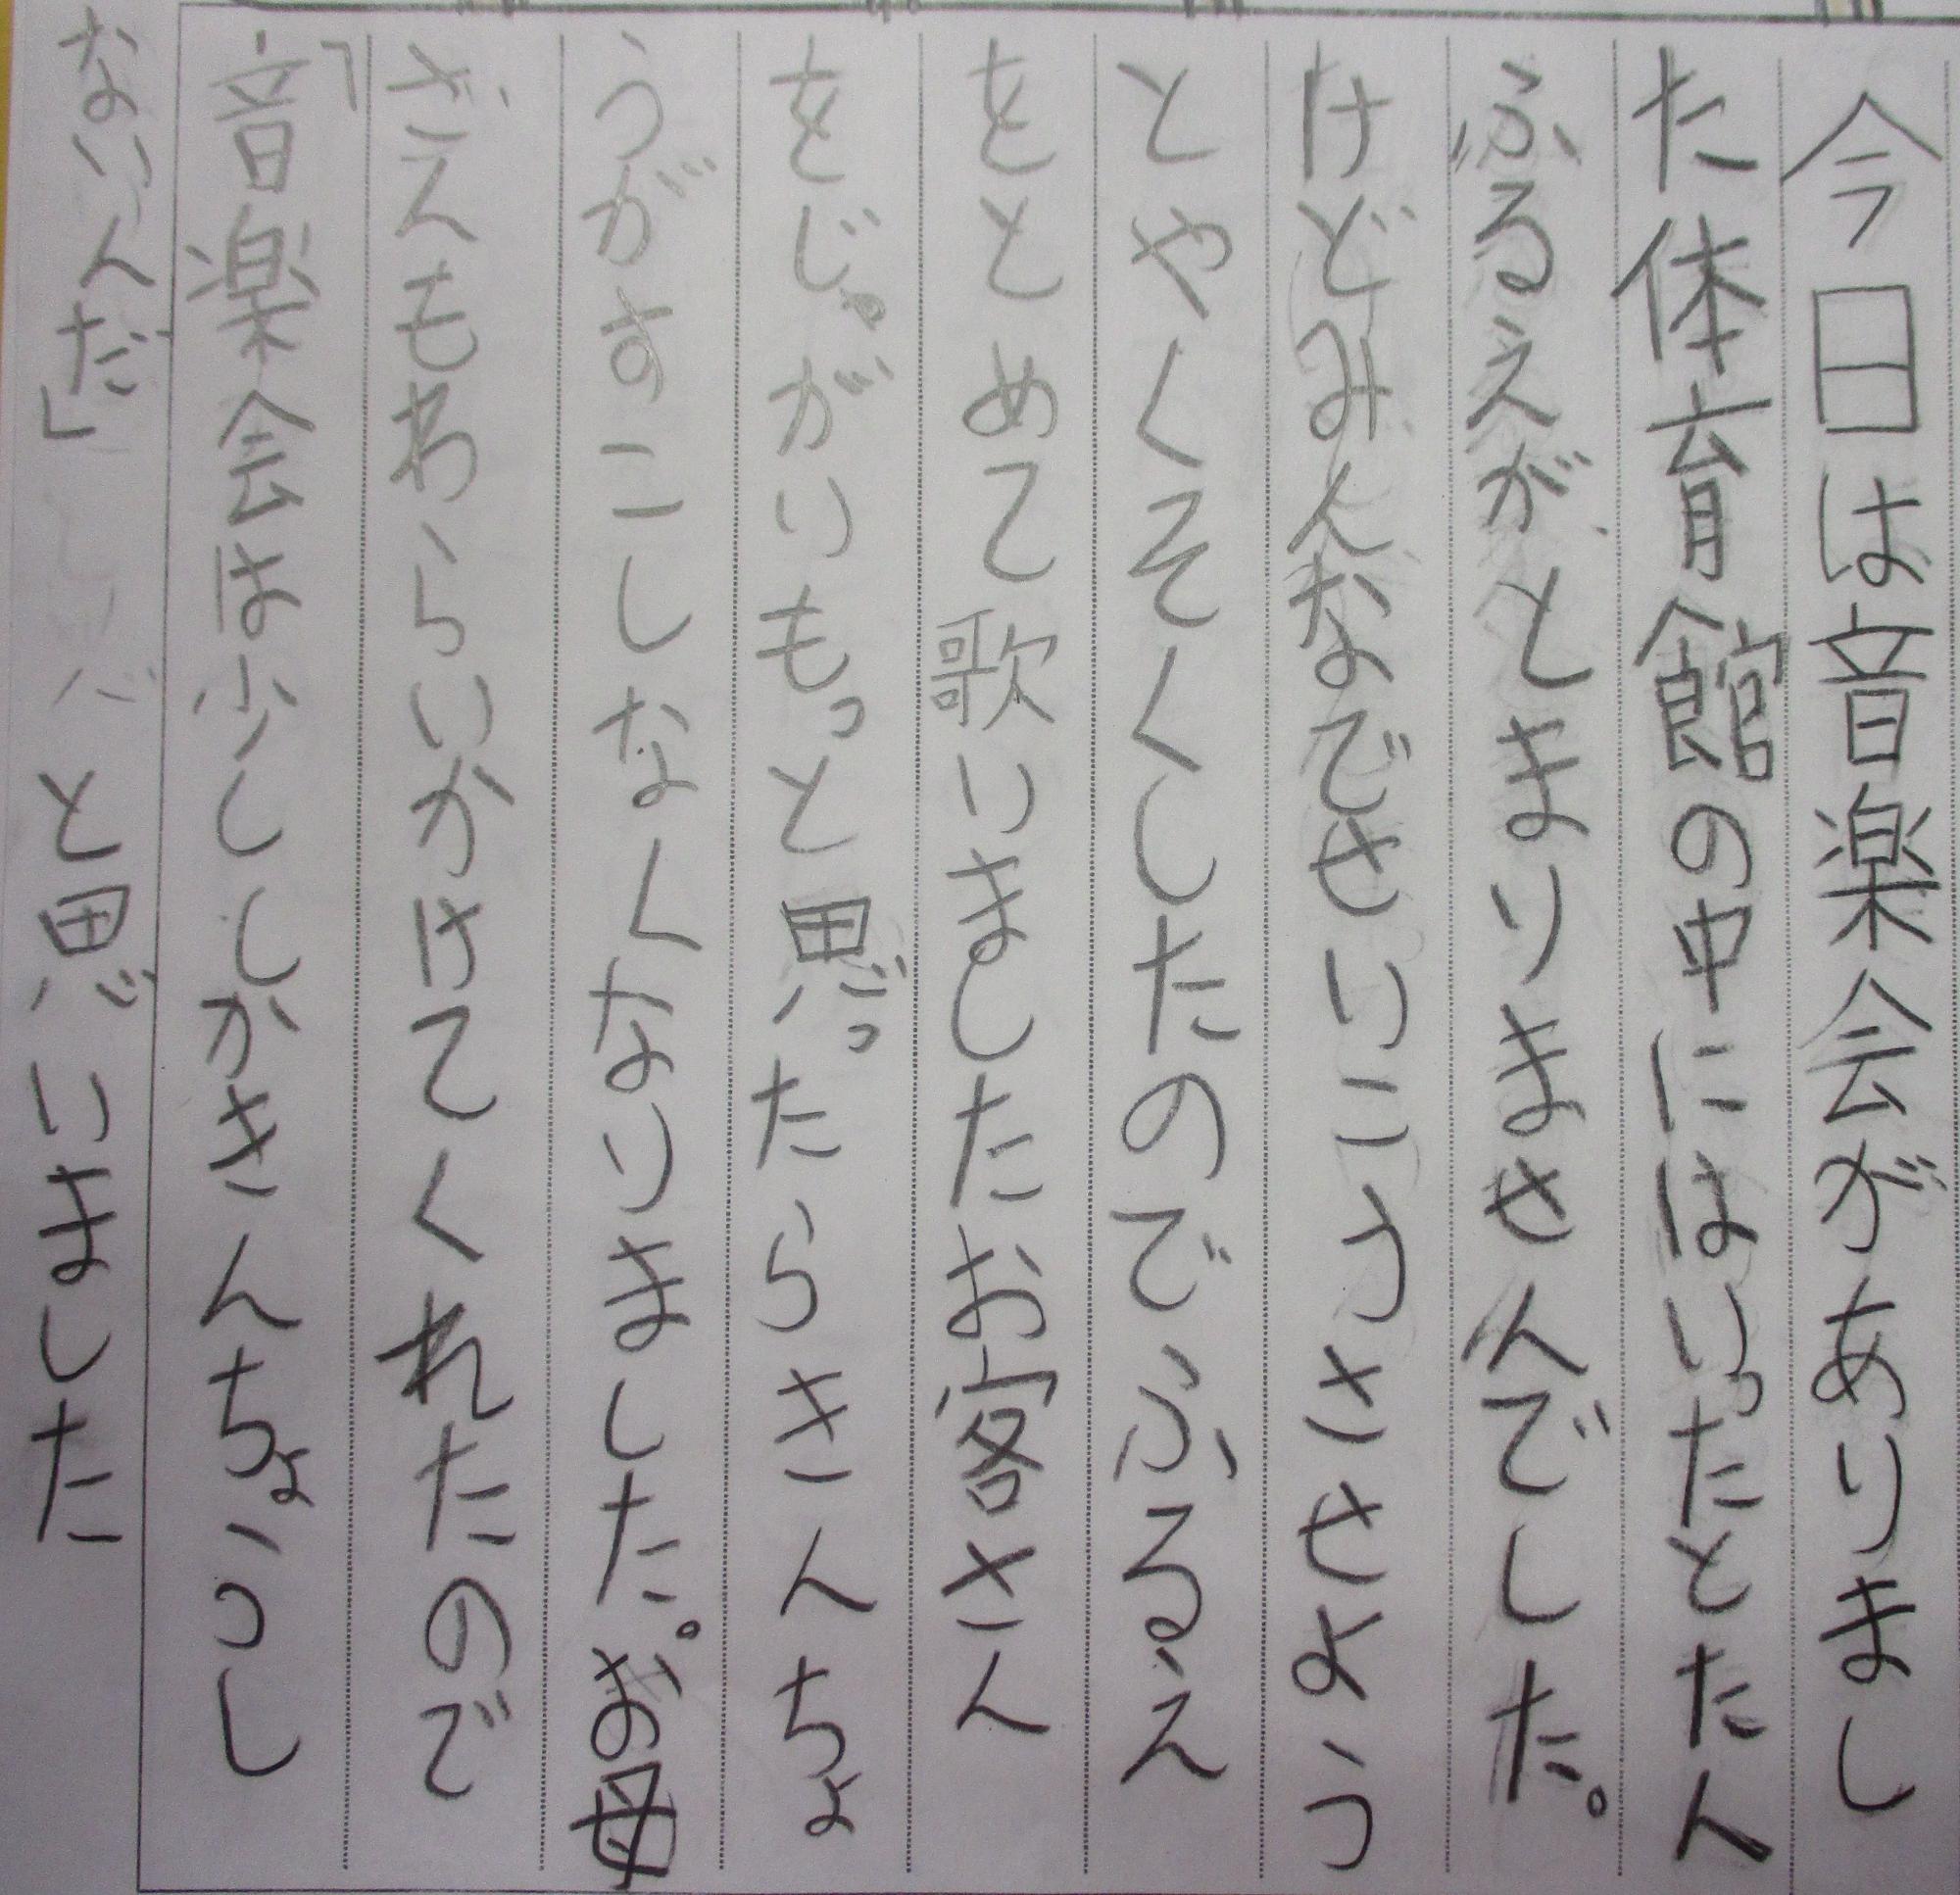 今日は音楽会がありまし
た体育館の中にはいったとたん
ふるえがとまりませんでした。
けどみんなでせいこうさせよう
とやくそくしたのでふるえ
をとめて歌いましたお客さん
をじゃがりもっと思ったらきんちょ
うがすこしなくなりました。お母
ざんもわらいかけてくれたので
「音楽会は少ししかきんちょうし
ないんだ」と思いました